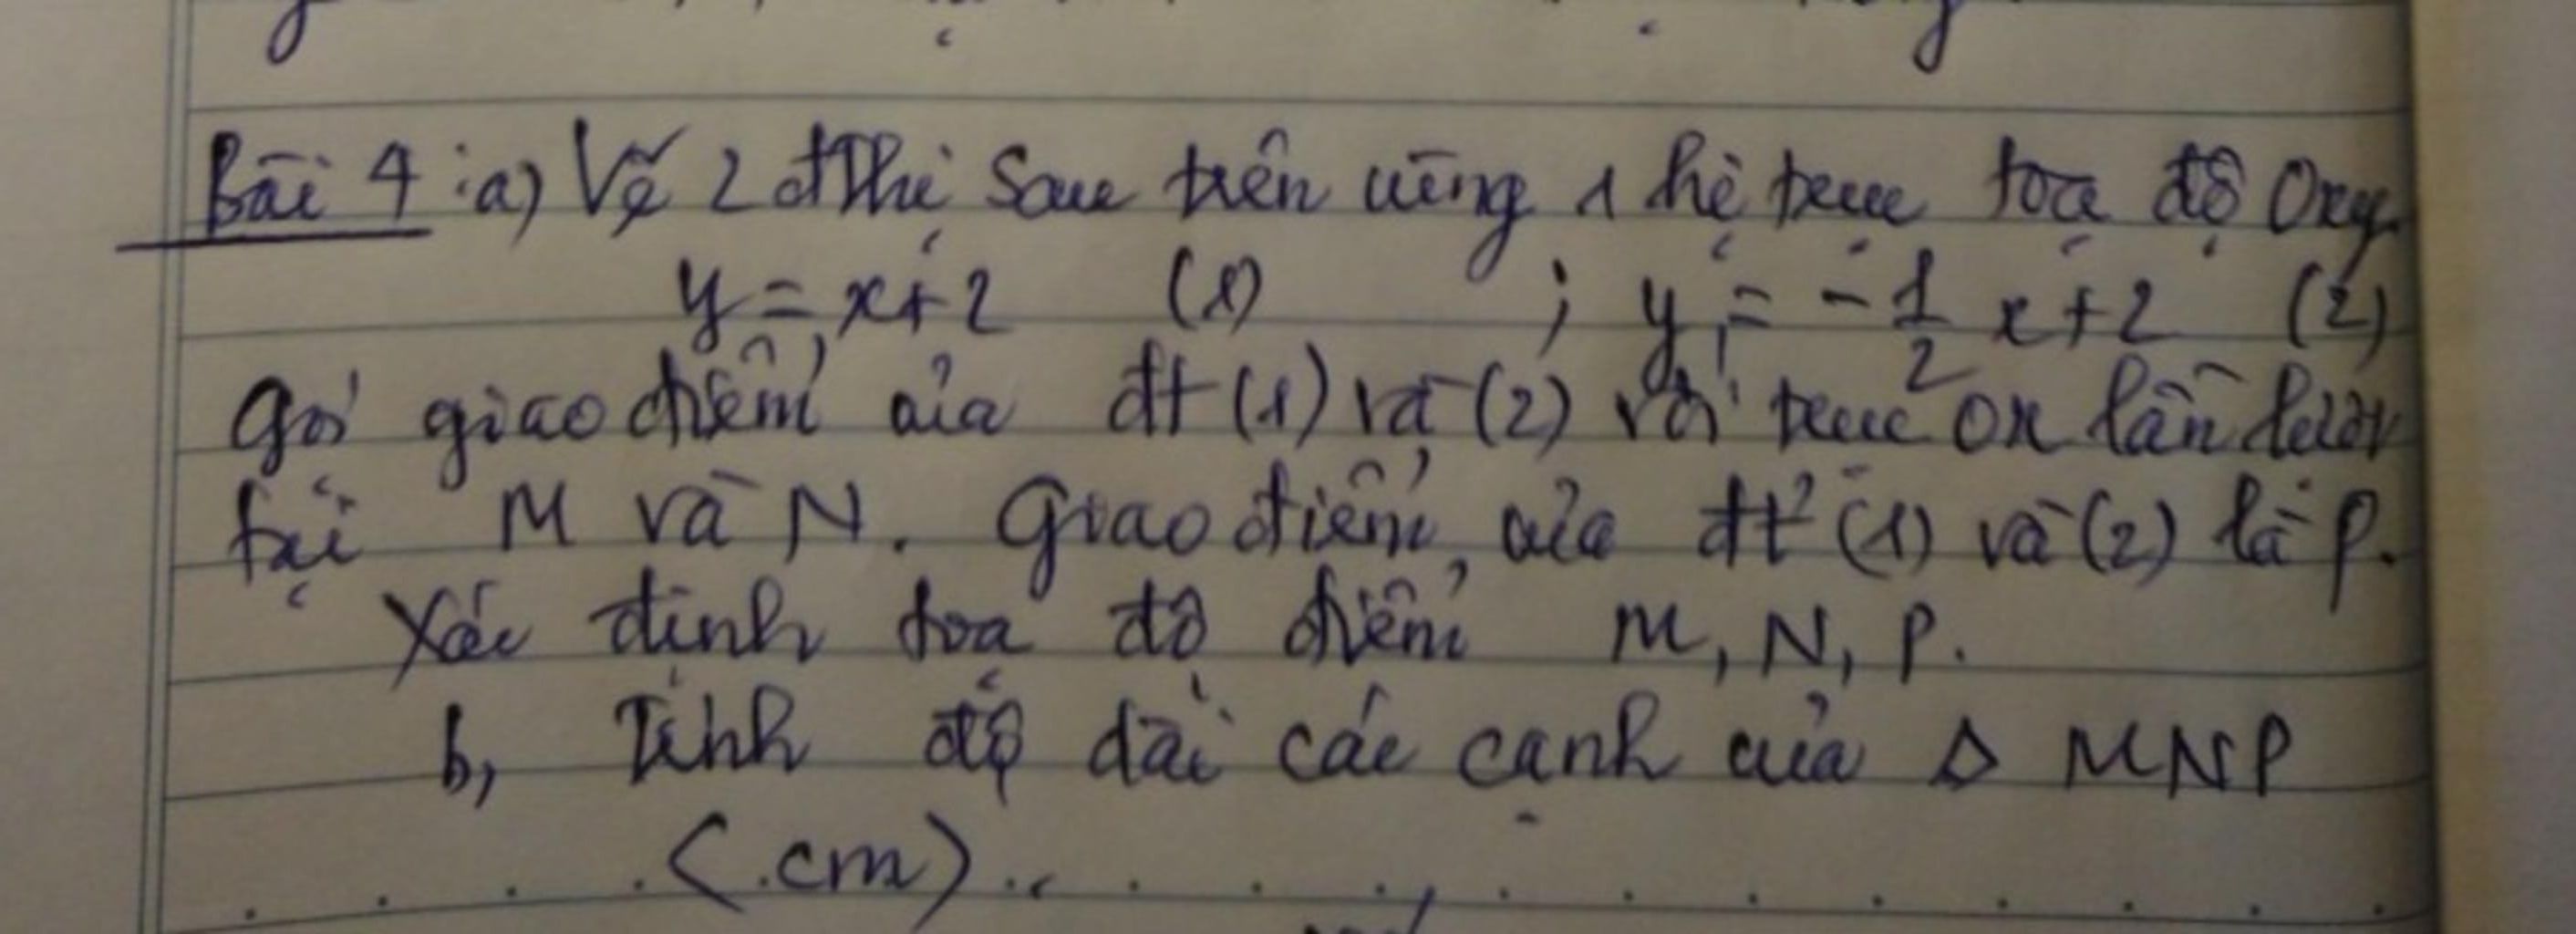 Bài 4 : a) Vẽ 2 đthị sau trên cùng 1 hệ trục toạ độ Oxy
y = x+2 (1) ; y = -1/2 x + 2 (2)
Gọi giao điểm của đt (1) và (2) với trục ox lần lượt
tại M và N. Giao điểm của đt (1) và (2) là P.
Xác định toạ độ điểm M, N, P.
b, Tính độ dài các cạnh của Δ MNP
(cm)